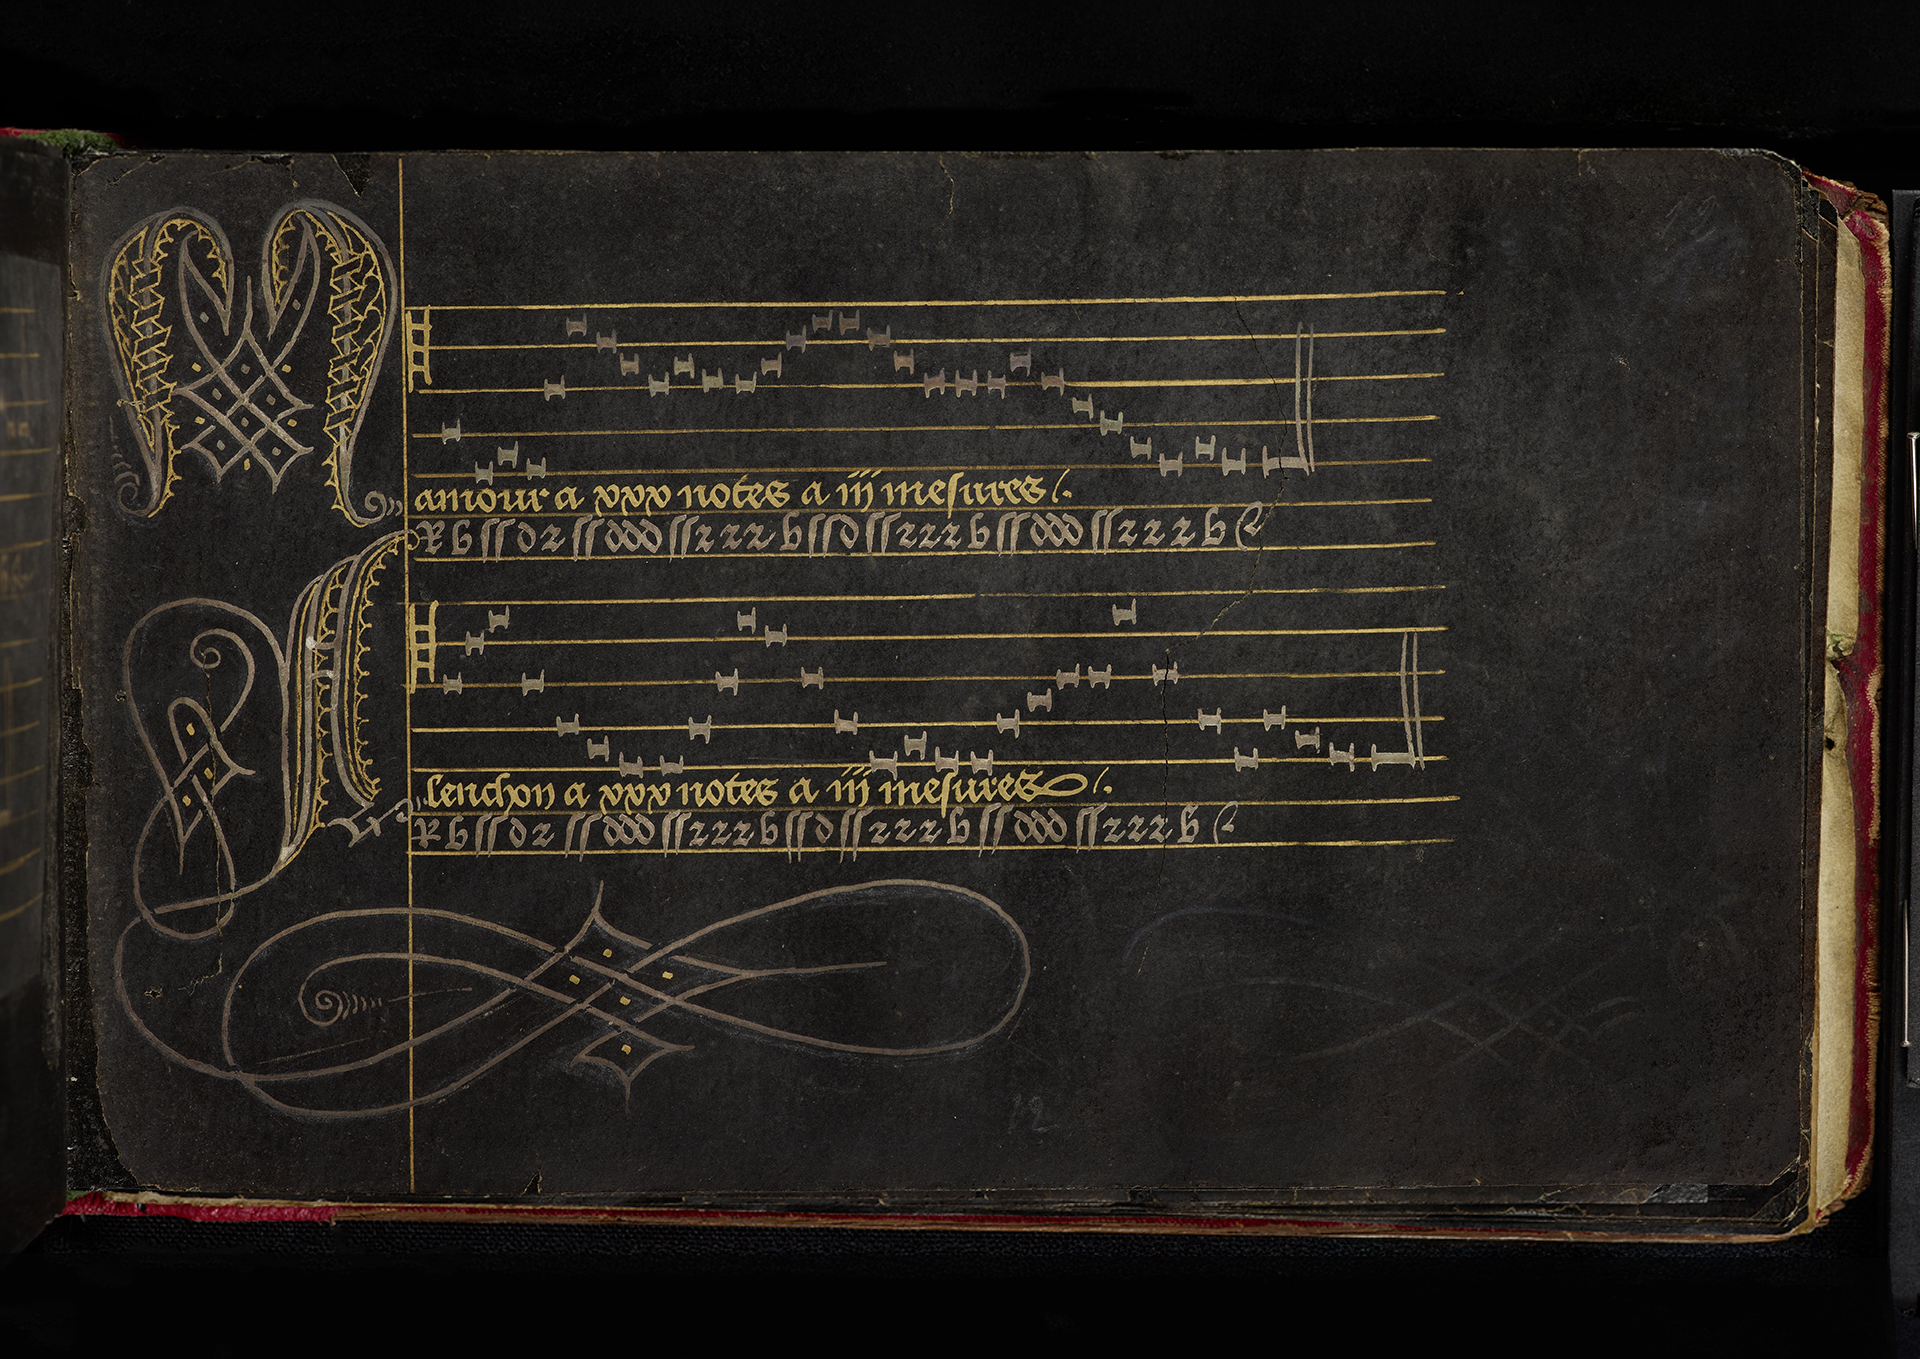 Mamour a xxx notes a iii mesures
R b ss d r ss ddd ss rrr b ss d ss rrr b ss ddd ss rrr b c
Alenchon a xxx notes a iii mesures
R b ss d r ss ddd ss rrr b ss d ss rrr b ss ddd ss rrr b c
12